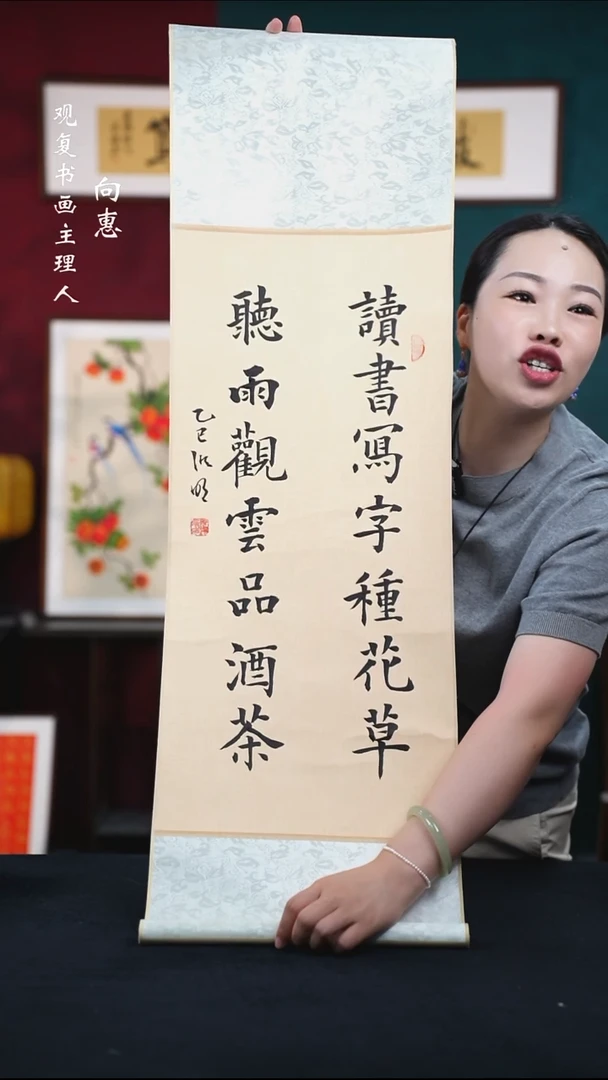 讀書寫字種花草
聽雨觀雲品酒茶
乙巳
向惠
观复书画主理人